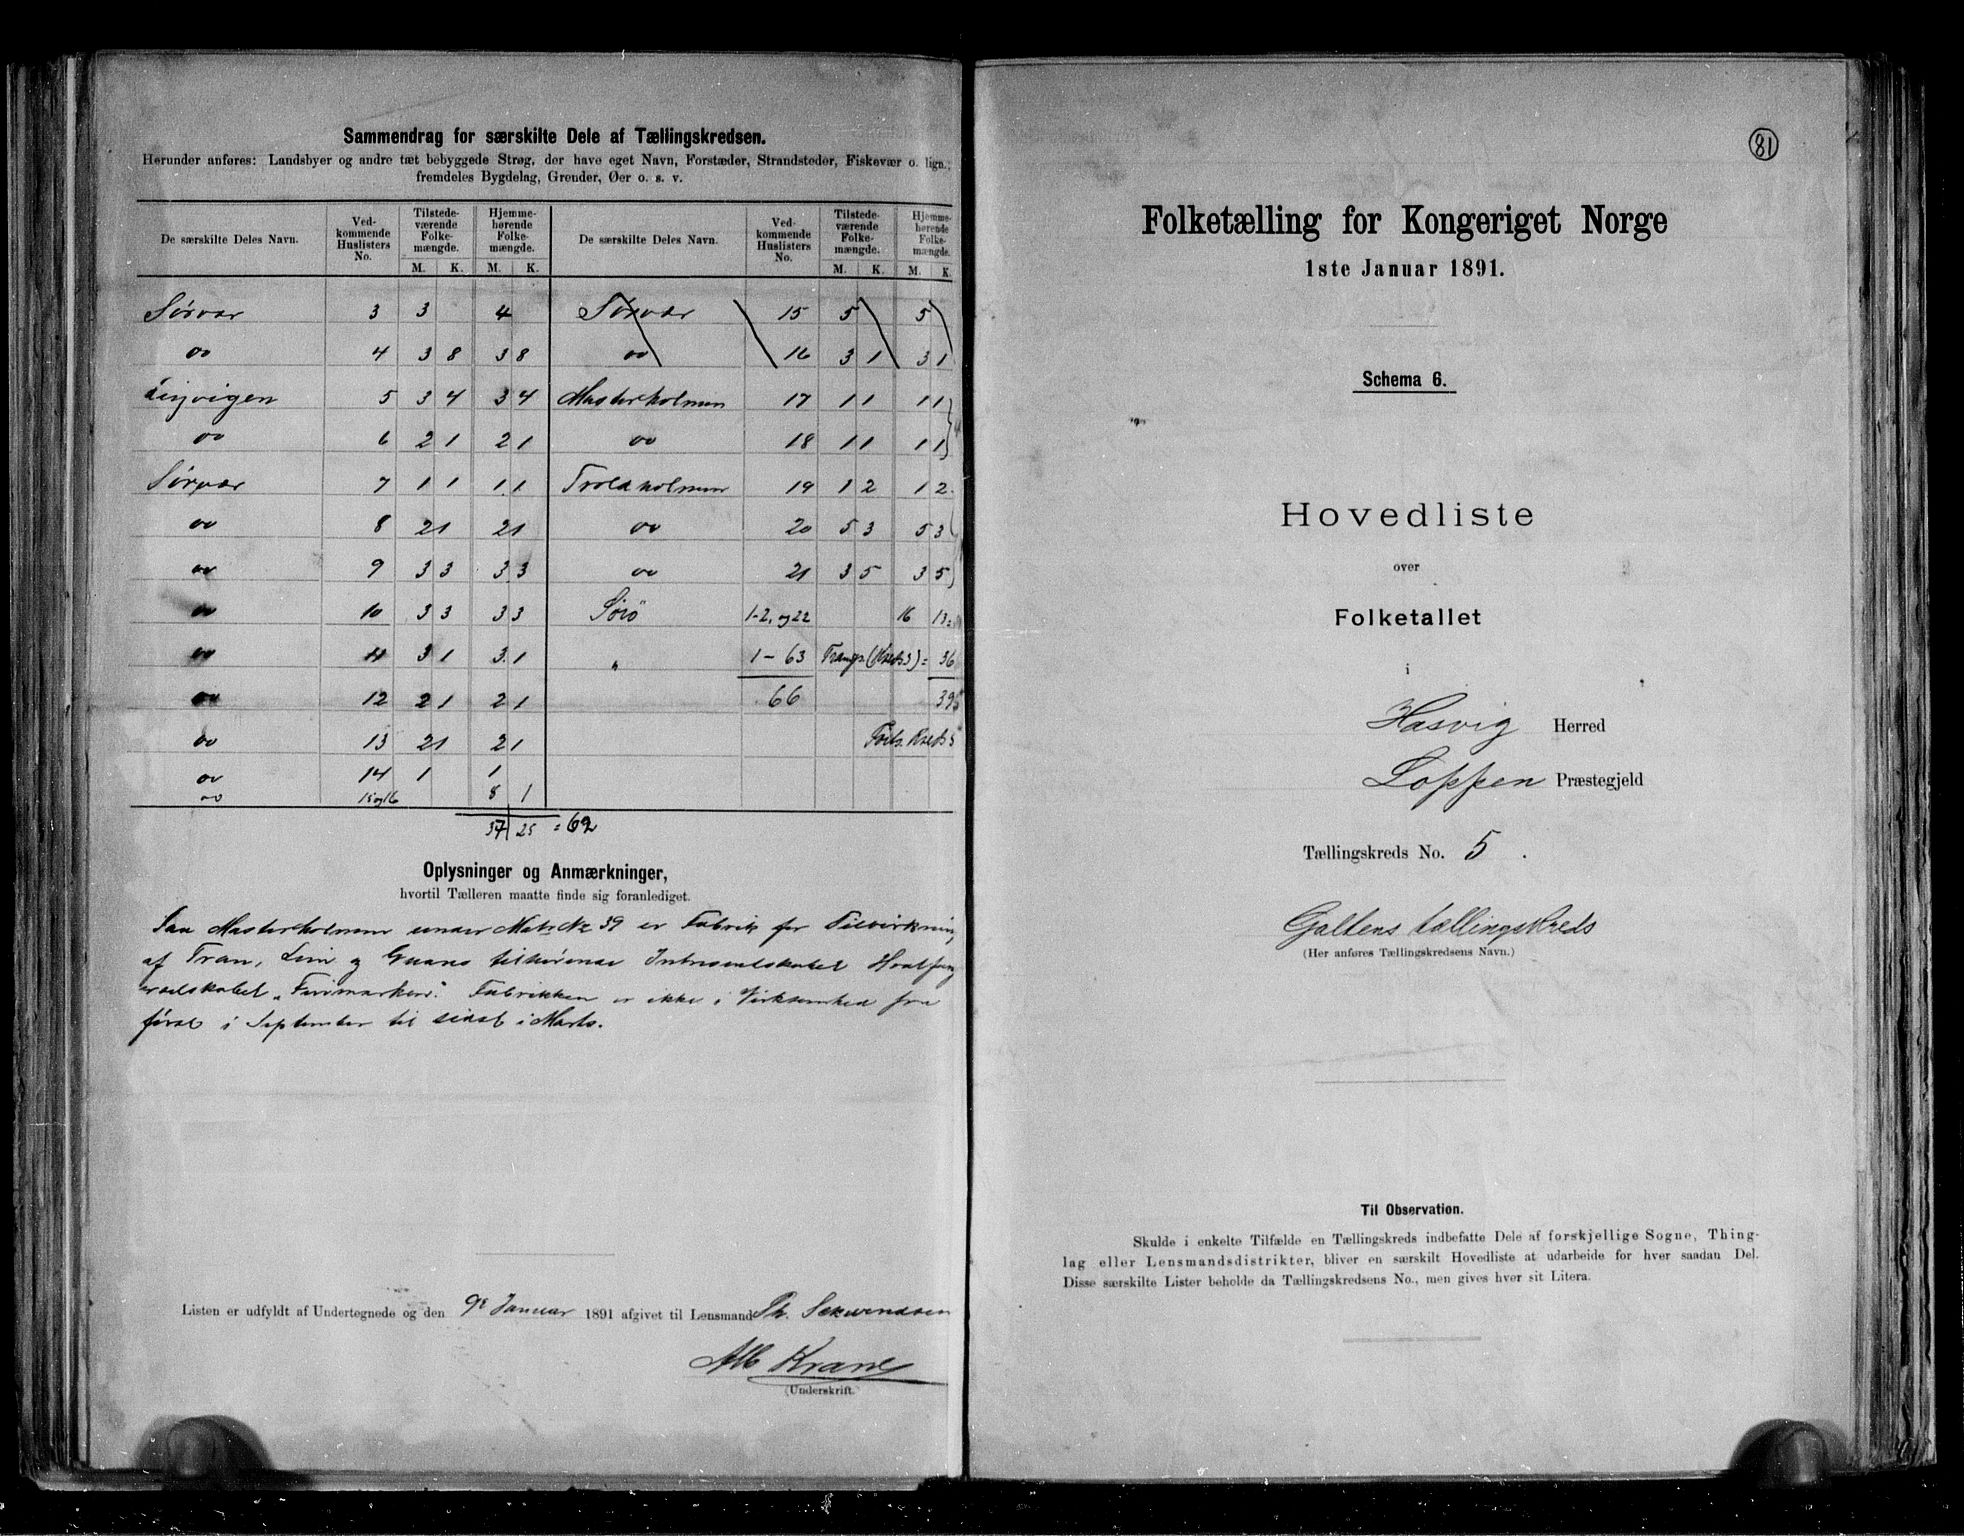 Sammendrag for særskilte Dele af Tællingskredsen.
Herunder anføres: Landsbyer og andre tæt bebyggede Strøg, der have eget Navn, Forstæder, Strandsteder, Fiskevær o. lign.;
fremdeles Bygdelag, Grender, Øer o. s. v.
De særskilte Deles Navn. Vedkommende Huslisters No. Tilstedeværende Folkemængde. M. K. Hjemmehørende Folkemængde. M. K. De særskilte Deles Navn. Vedkommende Huslisters No. Tilstedeværende Folkemængde. M. K. Hjemmehørende Folkemængde. M. K.
Sørvær 3 3 4 Sørvær 15 5 5
oo 4 3 8 3 8 oo 16 3 1 3 1
5 3 4 3 4 Masterholmen 17 1 1 1 1
oo 6 2 1 2 1 oo 18 1 1 1 1
Sørvær 7 1 1 1 1 Troldholmen 19 1 2 1 2
oo 8 2 1 2 1 oo 20 5 3 5 3
oo 9 3 3 3 3 oo 21 3 5 3 5
oo 10 3 3 3 3 Sørö 1-2, og 22 16 13
oo 11 3 1 3 1 " 1 - 63 (Kreds 3) = 36
oo 12 2 1 2 1 66 39
oo 13 2 1 2 1 Forts. Kreds 5
oo 14 1 1
oo 15 og 16 8 1
37 25 = 62
Oplysninger og Anmærkninger,
hvortil Tælleren maatte finde sig foranlediget.
Paa Masterholmen under Mats No 39 er Fabrik for Tilvirkning
af Tran, Lim og Guano tilhørende Interessentskabet Hvalfang
erselskabet "Finmarken". Fabrikken er ikke i Virksomhed fra
først i September til sidst i Marts.
Listen er udfyldt af Undertegnede og den 9de Januar 1891 afgivet til Lensmand Th.
Alb Krane
(Underskrift.)
81
Folketælling for Kongeriget Norge
1ste Januar 1891.
Schema 6.
Hovedliste
over
Folketallet
i
Hasvig Herred
Loppen Præstegjeld
Tællingskreds No. 5.
Galtens tællingskreds
(Her anføres Tællingskredsens Navn.)
Til Observation.
Skulde i enkelte Tilfælde en Tællingskreds indbefatte Dele af forskjellige Sogne, Thing-
lag eller Lensmandsdistrikter, bliver en særskilt Hovedliste at udarbeide for hver saadan Del.
Disse særskilte Lister beholde da Tællingskredsens No., men gives hver sit Litera.